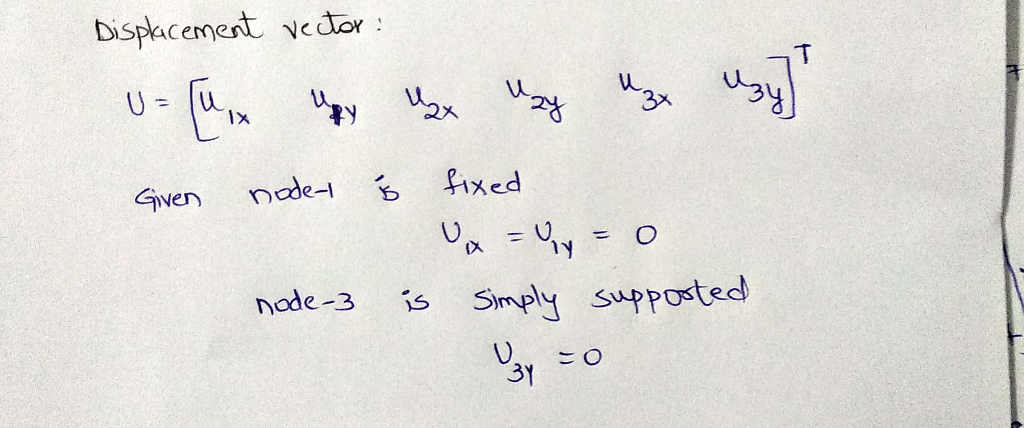 Displacement vector :
U = [u1x u1y u2x u2y u3x u3y]T
Given node-1 is fixed
U1x = U1y = 0
node-3 is simply supported
U3y = 0